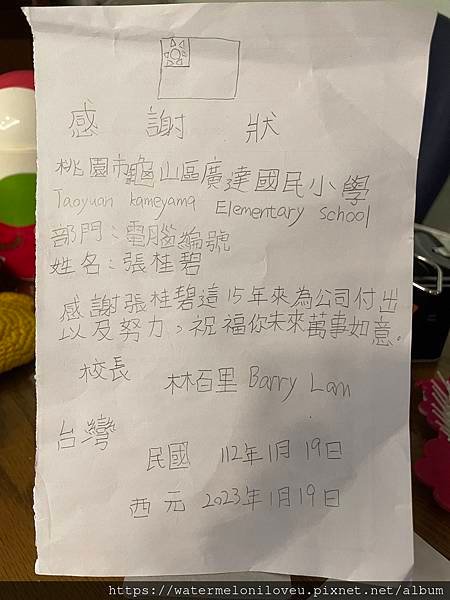 感謝狀
桃園市龜山區廣達國民小學
Taoyuan kameyama Elementary school
部門：電腦編號
姓名：張桂碧
感謝張桂碧這15年來為公司付出
以及努力，祝福你未來萬事如意。
校長 林百里 Barry Lam
台灣
民國 112年1月19日
西元 2023年1月19日
https://watermeloniloveu.pixnet.net/album